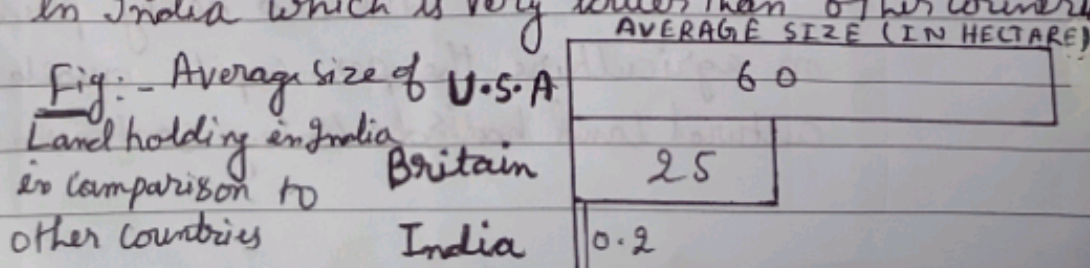 In India which is very lower than other countri
AVERAGE SIZE (IN HECTARE)
Fig:- Average size of
Land holding in India
in comparison to
other countries
U.S.A 60
Britain 25
India 0.2